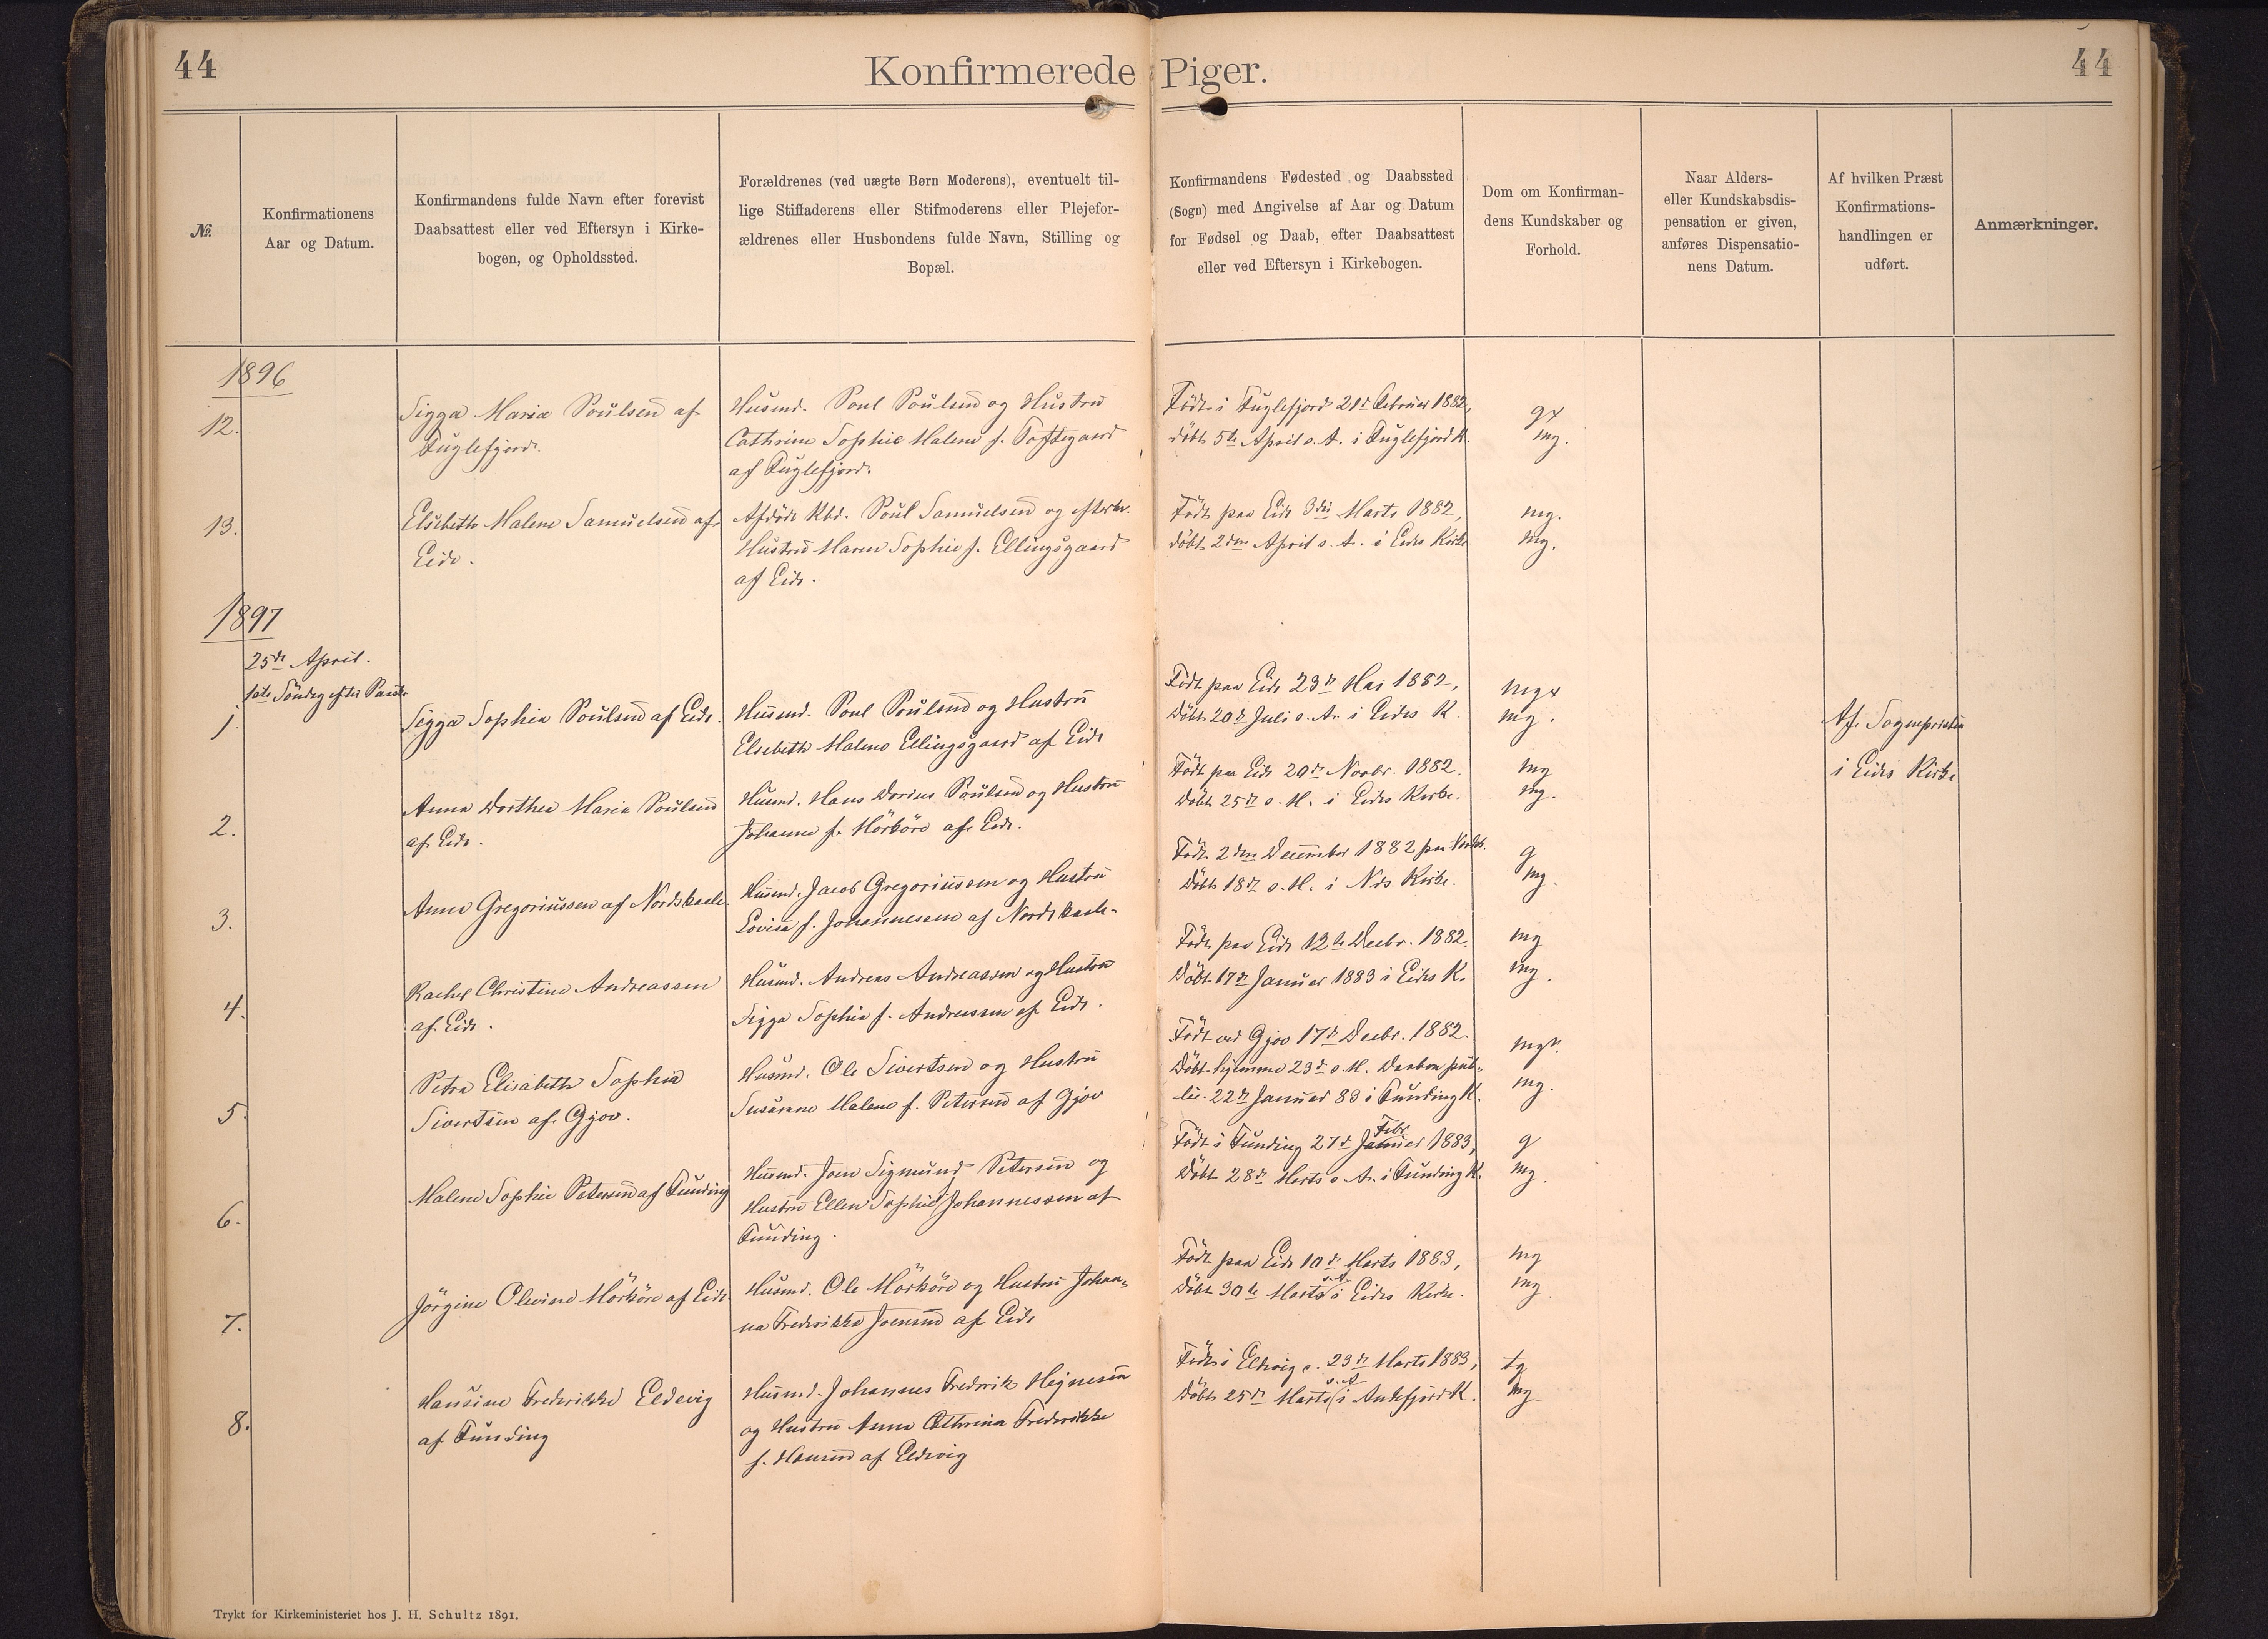 44
Konfirmerede Piger.
44
№.
Konfirmationens
Aar og Datum.
Konfirmandens fulde Navn efter forevist
Daabsattest eller ved Eftersyn i Kirke-
bogen, og Opholdssted.
Forældrenes (ved uægte Børn Moderens), eventuelt til-
lige Stiffaderens eller Stifmoderens eller Plejefor-
ældrenes eller Husbondens fulde Navn, Stilling og
Bopæl.
Konfirmandens Fødested og Daabssted
(Sogn) med Angivelse af Aar og Datum
for Fødsel og Daab, efter Daabsattest
eller ved Eftersyn i Kirkebogen.
Dom om Konfirman-
dens Kundskaber og
Forhold.
Naar Alders-
eller Kundskabsdis-
pensation er given,
anføres Dispensatio-
nens Datum.
Af hvilken Præst
Konfirmations-
handlingen er
udført.
Anmærkninger.
1896
12.
Sigga Maria Poulsen af
Fuglefjord.
Husmd. Poul Poulsen og Hustru
Cathrine Sophie Malene f. Toftegaard
af Fuglefjord.
Födt i Fuglefjord 21d Februar 1882,
döbt 5te April s. A. i Fuglefjord K.
gx
mg.
13.
Elsebeth Malene Samuelsen af
Eide.
Afdöde Kbd. Poul Samuelsen og efterlev.
Hustru Maren Sophie f. Ellingsgaard
af Eide.
Födt paa Eide 3die Marts 1882,
döbt 2den April s. A. i Eides Kirke
mg.
mg.
1897
25de April.
1ste Söndag efter Paaske
1.
Sigga Sophia Poulsen af Eide.
Husmd. Poul Poulsen og Hustru
Elsebeth Malene Ellingsgaard af Eide
Födt paa Eide 23de Mai 1882,
Döbt 20de Juli s. A. i Eides K.
mgx
mg.
Af Sognepræsten
i Eides Kirke
2.
Anna Dorthea Maria Poulsen
af Eide.
Husmd. Hans Dorius Poulsen og Hustru
Johanne f. Mörköre af Eide.
Födt paa Eide 20de Novbr. 1882.
Döbt 25de s. M. i Eides Kirke.
mg
mg.
3.
Anna Gregoriussen af Nordskaale.
Husmd. Jacob Gregoriussen og Hustru
Lovisa f. Johannessen af Nordskaale.
Födt 2den December 1882 paa Nordsk.
Döbt 18de s. M. i Nds. Kirke.
g
mg.
4.
Rachel Christine Andreassen
af Eide.
Husmd. Andreas Andreassen og Hustru
Sigga Sophia f. Andreassen af Eide.
Födt paa Eide 12te Decbr. 1882.
Döbt 17de Januar 1883 i Eides K.
mg
mg.
5.
Petra Elisabeth Sophia
Sivertsen af Gjov.
Husmd. Ole Sivertsen og Hustru
Susanne Malene f. Petersen af Gjov
Födt ved Gjov 17de Decbr. 1882.
Döbt hjemme 23de s. M. Daaben pub-
lic. 22de Januar 83 i Funding K.
mgx.
mg.
6.
Malene Sophie Petersen af Funding
Husmd. Joen Sigmund Petersen og
Hustru Ellen Sophie Johannessen af
Funding.
Febr.
Födt i Funding 27d Januar 1883,
Döbt 28de Marts s. A. i Funding K.
g
mg.
7.
Jörgine Olevine Mörköre af Eide
Husmd. Ole Mörköre og Hustru Johan-
na Frederikka Joensen af Eide
Födt paa Eide 10de Marts 1883,
s. A.
Döbt 30te Marts i Eides Kirke.
mg
mg.
8.
Hansine Frederikke Eldevig
af Funding
Husmd. Johannes Fredrik Hejnesen
og Hustru Anna Cathrina Frederikke
f. Hansen af Eldevig
Födt i Eldevig d. 23de Marts 1883,
s. A.
Döbt 25de Marts i Andefjord K.
tg
mg
Trykt for Kirkeministeriet hos J. H. Schultz 1891.